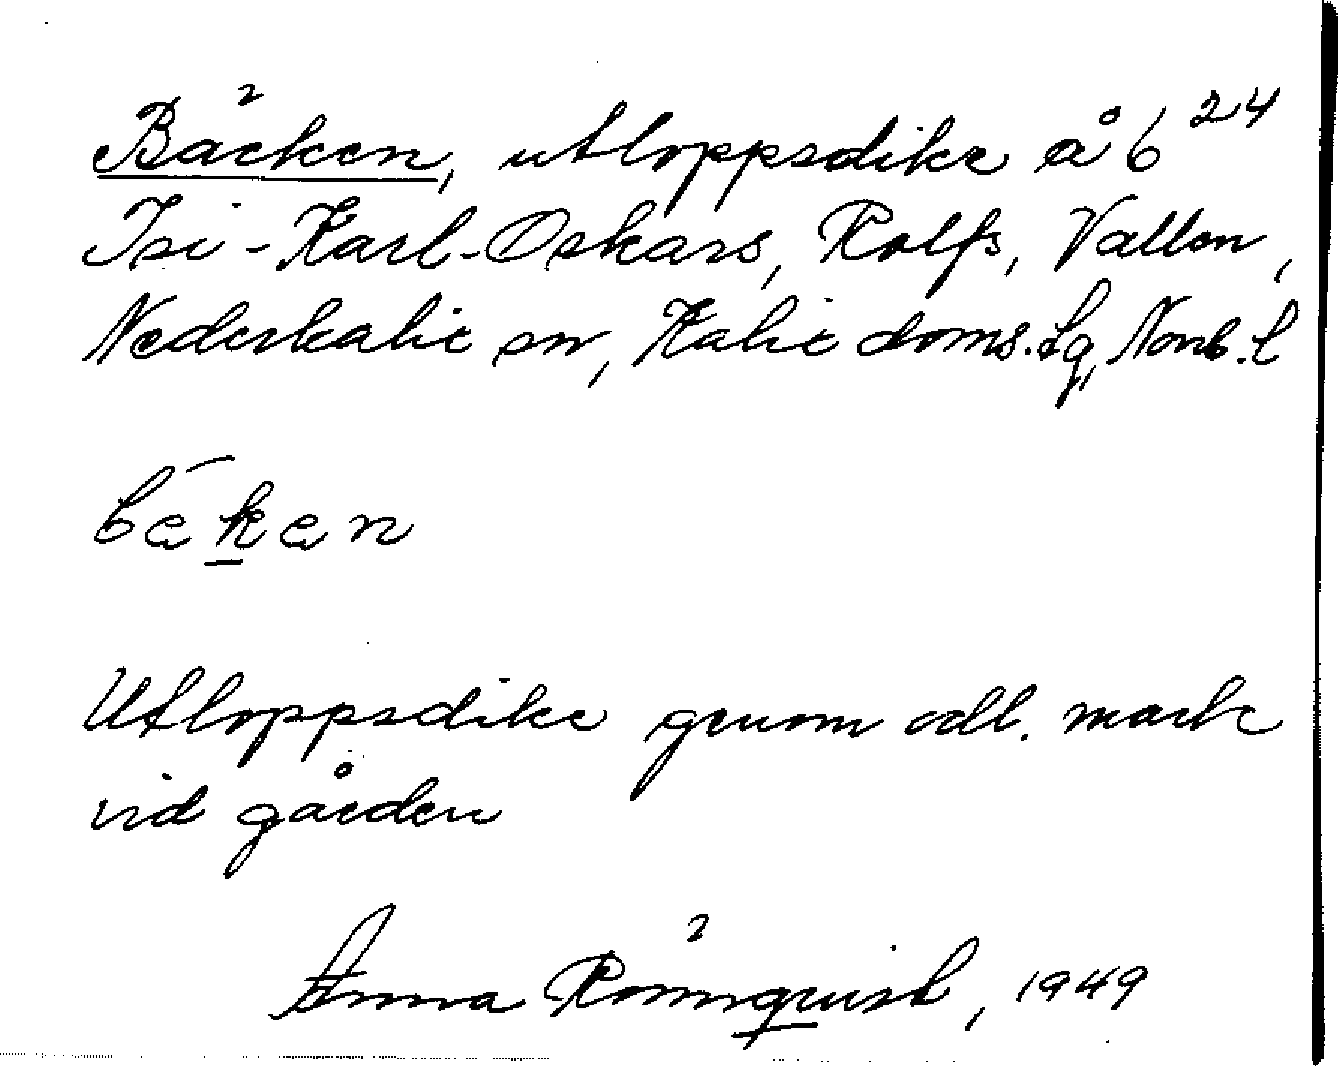 Bäcken, utloppsdike å 6²⁴
Isi-Karl-Oskars, Rolfs, Vallen,
Nederkalix sn, Kalix doms.lg, Norrb.l
bękęn
Utloppsdike genom odl. mark
vid gården
Anna Rönnquist, 1949